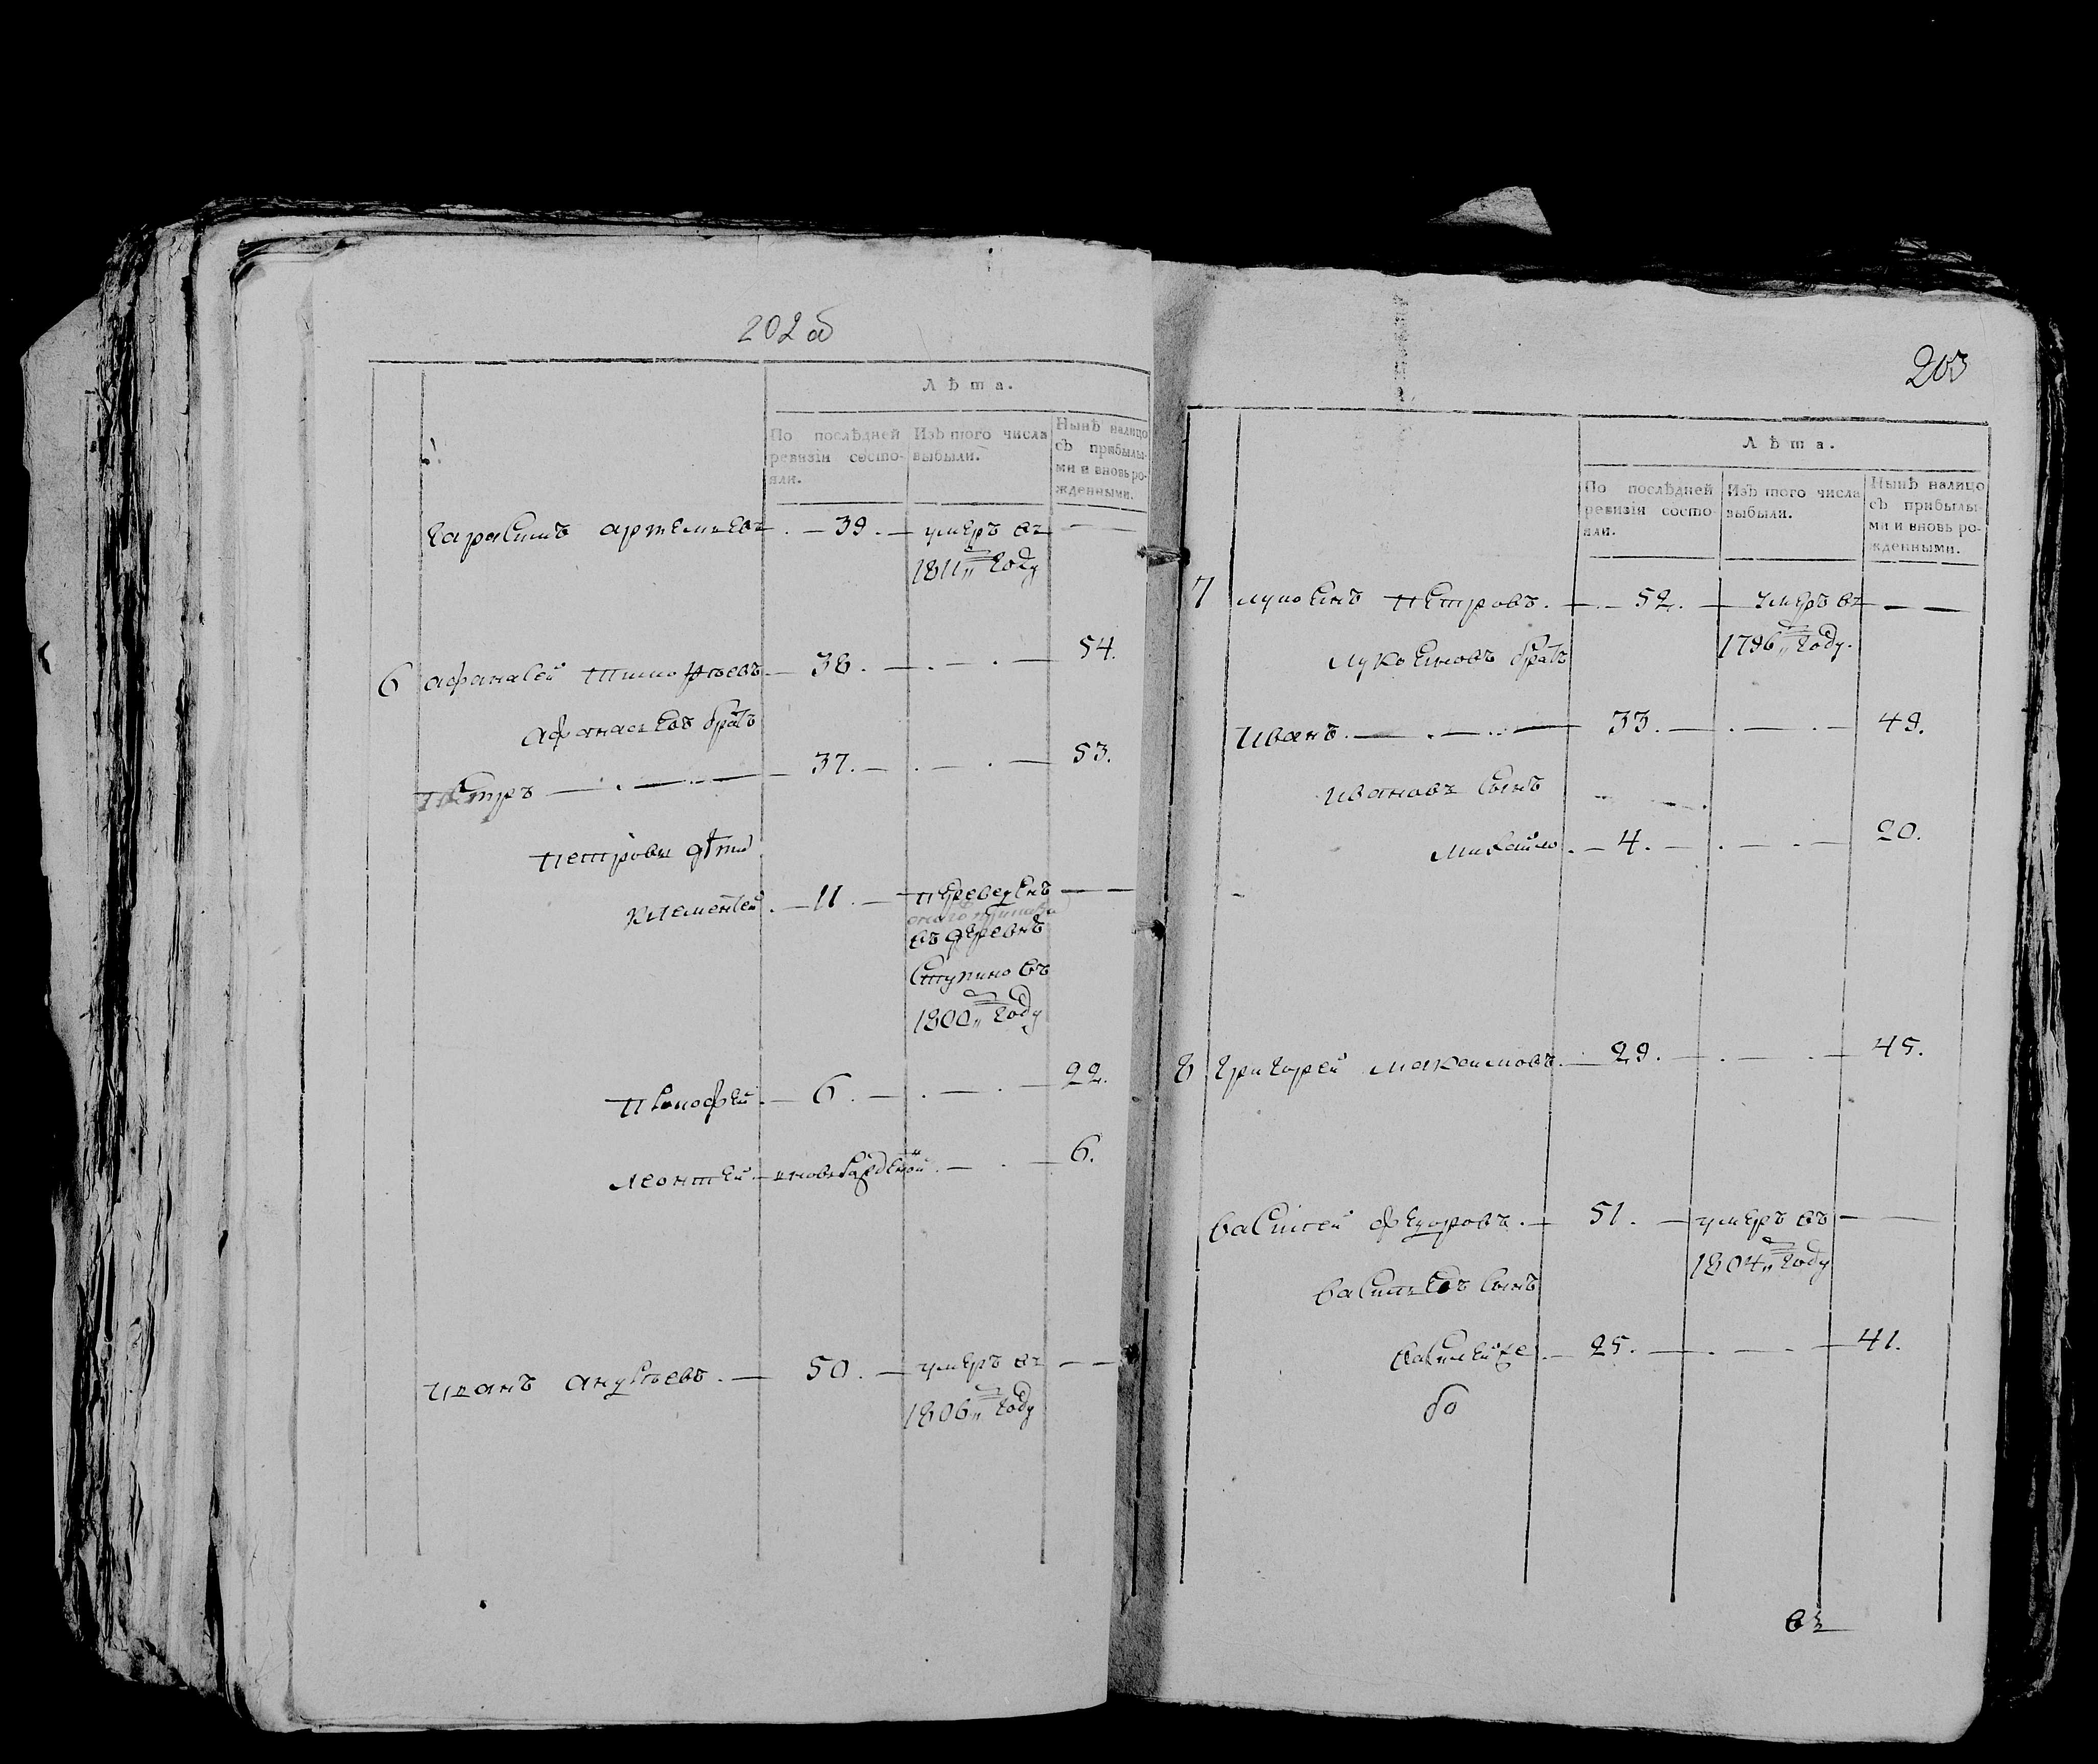 202 об
Лѣта.
По послѣдней ревизіи состо-
яли.
Изъ того числа выбыли.
Нынѣ налицо съ прибылы-
ми и вновь ро-
жденными.
Гарасимъ Артемьевъ — 39 — умеръ въ —
1811„ году
6 Афанасей Тимофѣевъ — 38 — 54.
Афанасьевъ братъ
Петръ — 37 — 53.
Петровы дѣти
Клементей — 11 — переведенъ —
въ деревнѣ
Ступино въ
1800„ году
6 — 22.
Леонтей — вновь рожденой — 6.
Иванъ — 50 — умеръ въ —
1806„ году
203
Лѣта.
По послѣдней ревизіи состо-
яли.
Изъ того числа выбыли.
Нынѣ налицо съ прибылы-
ми и вновь ро-
жденными.
7 Петровъ — 52 — умеръ въ —
1796„ году.
братъ
Иванъ — 33 — 49.
Ивановъ сынъ
Михайло — 4 — 20.
8 Григорей Максимовъ — 29 — 45.
Василей Федоровъ — 51 — умеръ въ —
1804„ году
Васильевъ сынъ
Василей же — 25 — 41.
въ